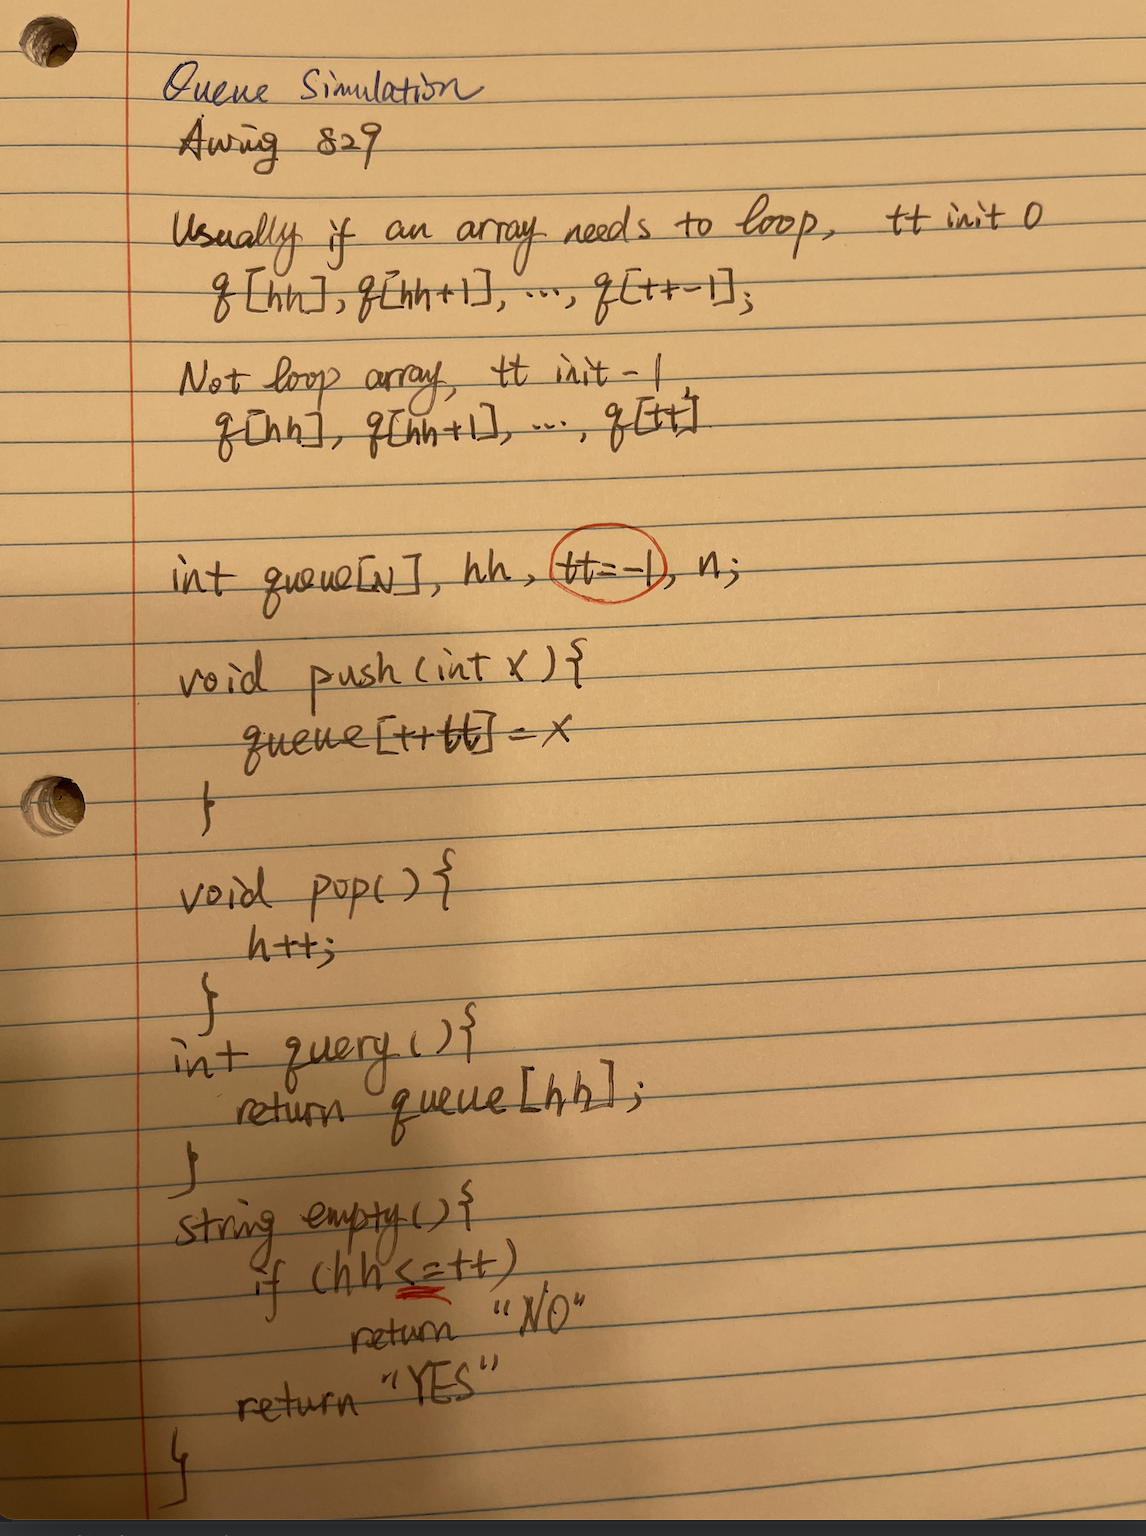 Queue Simulation
Awing 829
Usually if an array needs to loop, tt init 0
q[hh], q[hh+1], ..., q[tt-1];
Not loop array, tt init -1
q[hh], q[hh+1], ..., q[tt]
int queue[N], hh, tt=-1, n;
void push (int x){
queue[++tt] = x
}
void pop(){
h++;
}
int query(){
return queue[hh];
}
string empty(){
if (hh<=tt)
return "NO"
return "YES"
}